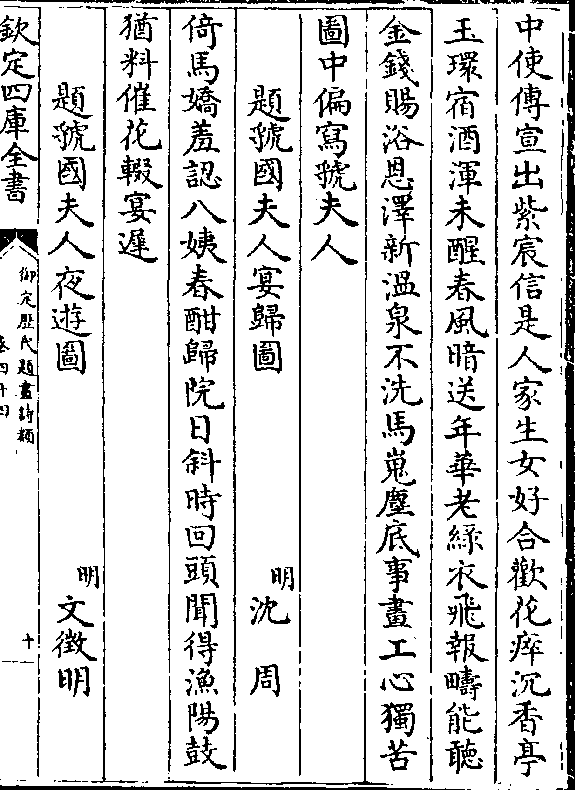 中使傳宣出紫宸信是人家生女好合歡花瘁沉香亭
玉環宿酒渾未醒春風暗送年華老緑衣飛報疇能聽
金錢賜浴恩澤新溫泉不洗馬嵬塵底事畫工心獨苦
圖中偏寫虢夫人
題虢國夫人宴歸圖 明 沈周
倚馬嬌羞認八姨春酣歸院日斜時回頭聞得漁陽鼓
猶料催花輟宴遲
題虢國夫人夜遊圖 明 文徵明
欽定四庫全書
御定歷代題畫詩類
卷四十四
十